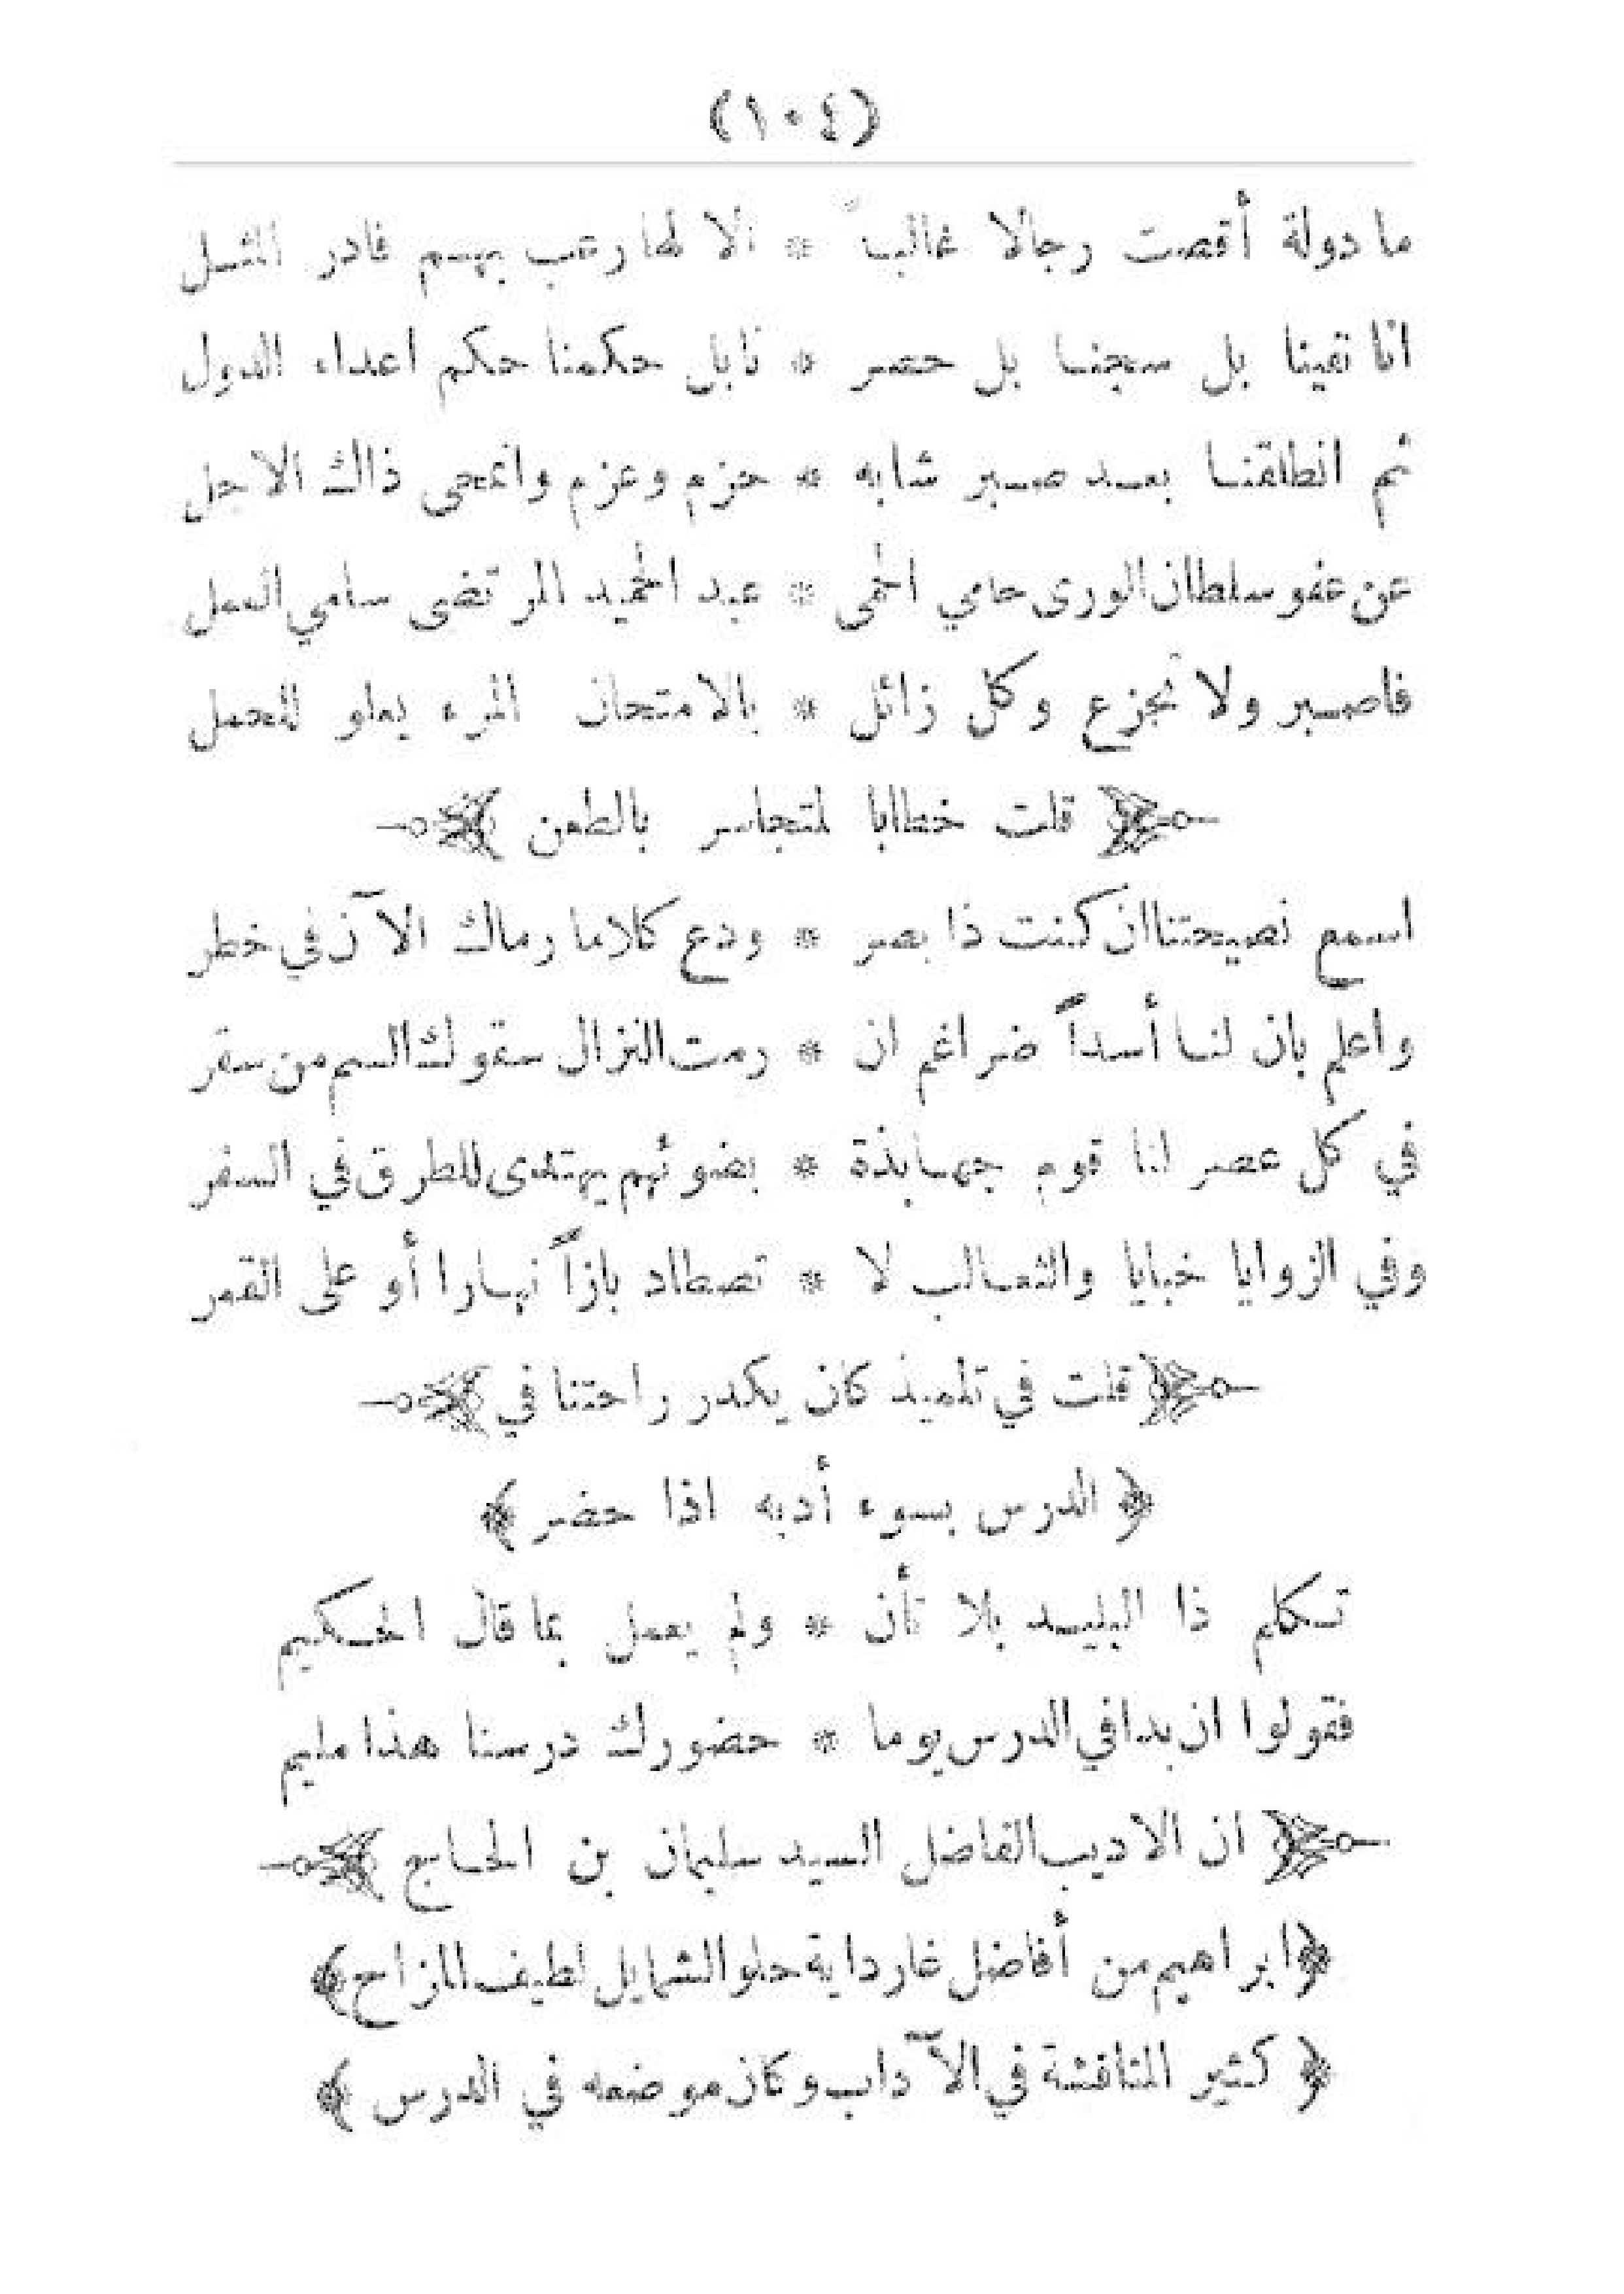 (١٠٤)
ما دولة أقصت رجالا غالبا * الا لها رعب بهم قادر المثل
انا نفينا بل سجنا بل حصر * نا بل حكمنا حكم اعداء الدول
ثم انطلقنا بعد صبر شابه * حزم وعزم وانمحى ذاك الاجل
عن عفو سلطان الورى حامي الحمى * عبد الحميد المرتضى سامي العمل
فاصبر ولا تجزع وكل زائل * بالامتحان المرء يعلو للحمل
﴿ قلت خطابا لمتجاسر بالطعن ﴾
اسمع نصيحتنا ان كنت ذا بصر * ودع كلاما رماك الآن في خطر
واعلم بان لنا أسداً ضراغم ان * رمت النزال سقوك السم من سقر
في كل عصر لنا قوم جهابذة * بضوئهم يهتدى للطرق في السفر
وفي الزوايا خبايا والثعالب لا * تصطاد بازاً نهارا أو على القمر
﴿ قلت في تلميذ كان يكدر راحتنا في ﴾
﴿ الدرس بسوء أدبه اذا حضر ﴾
تكلم ذا البليد بلا تأن * ولم يعمل بما قال الحكيم
فقولوا ان بدا في الدرس يوما * حضورك درسنا هذا مليم
﴿ ان الاديب الفاضل السيد سليمان بن الحاج ﴾
﴿ ابراهيم من أفاضل غارداية حلو الشمايل لطيف المزاح ﴾
﴿ كثير المناقشة في الآداب وكان موضعه في الدرس ﴾